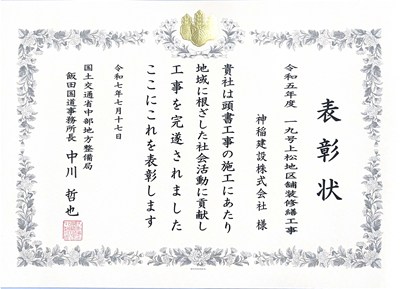 表彰状
令和五年度 一九号上松地区舗装修繕工事
神稲建設株式会社 様
貴社は頭書工事の施工にあたり
地域に根ざした社会活動に貢献し
工事を完遂されました
ここにこれを表彰します
令和七年七月十七日
国土交通省中部地方整備局
飯田国道事務所長 中川 哲也